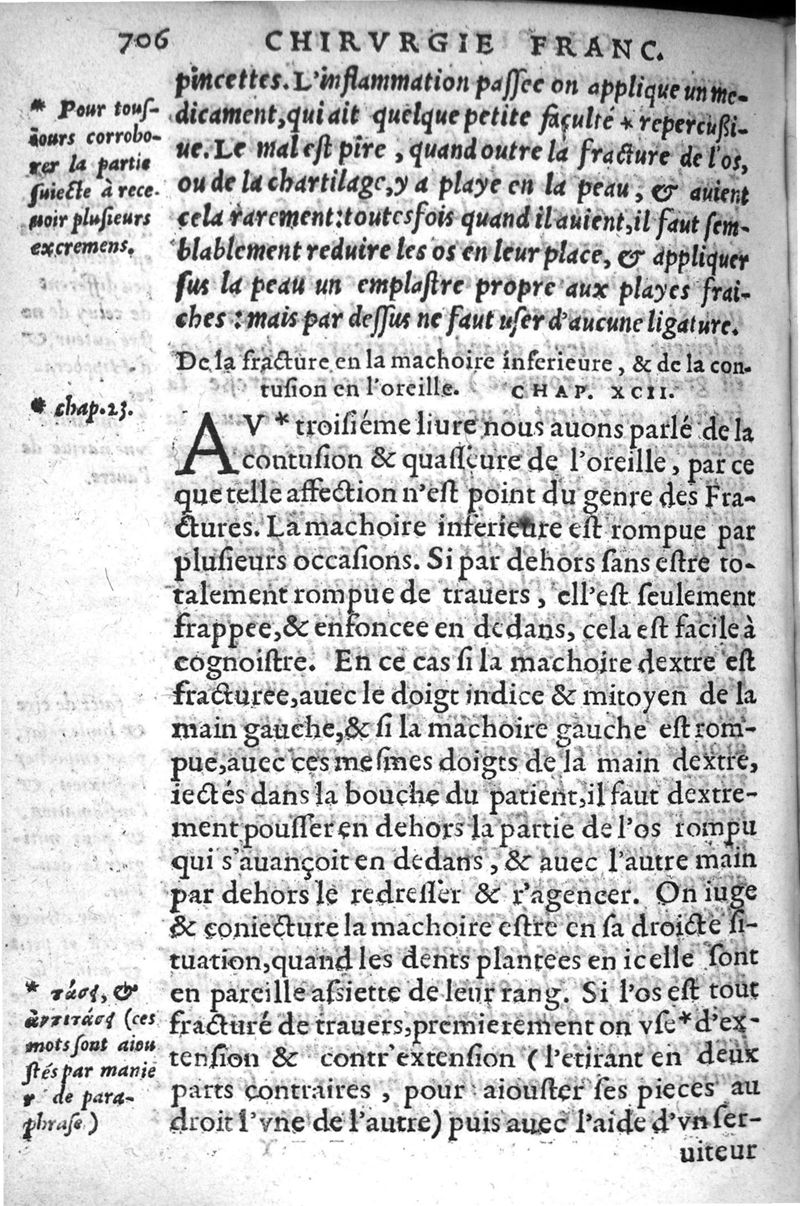 706 CHIRVRGIE FRANC.
pincettes. L'inflammation passee on applique un me-
dicament, qui ait quelque petite faculté * repercußi-
ue. Le mal est pire, quand outre la fracture de l'os,
ou de la chartilage, y a playe en la peau, & auient
cela rarement: toutesfois quand il auient, il faut sem-
blablement reduire les os en leur place, & appliquer
sus la peau un emplastre propre aux playes frai-
ches: mais par dessus ne faut user d'aucune ligature.
* Pour tous-
iours corrobo-
rer la partie
suiecte à rece-
uoir plusieurs
excremens.
De la fracture en la machoire inferieure, & de la con-
tusion en l'oreille. CHAP. XCII.
AV * troisiéme liure nous auons parlé de la
contusion & quasseure de l'oreille, par ce
que telle affection n'est point du genre des Fra-
ctures. La machoire inferieure est rompue par
plusieurs occasions. Si par dehors sans estre to-
talement rompue de trauers, ell'est seulement
frappee, & enfoncee en dedans, cela est facile à
cognoistre. En ce cas si la machoire dextre est
fracturee, auec le doigt indice & mitoyen de la
main gauche, & si la machoire gauche est rom-
pue, auec ces mesmes doigts de la main dextre,
iectés dans la bouche du patient, il faut dextre-
ment pousser en dehors la partie de l'os rompu
qui s'auançoit en dedans, & auec l'autre main
par dehors le redresser & r'agencer. On iuge
& coniecture la machoire estre en sa droicte si-
tuation, quand les dents plantees en icelle sont
en pareille assiette de leur rang. Si l'os est tout
fracturé de trauers, premierement on vse * d'ex-
tension & contr'extension (l'etirant en deux
parts contraires, pour aiouster ses pieces au
droit l'vne de l'autre) puis auec l'aide d'vn ser-
uiteur
* chap. 23.
* τάσις, &
ἀντιτάσις (ces
mots sont aiou
stés par manie
r de para-
phrase)